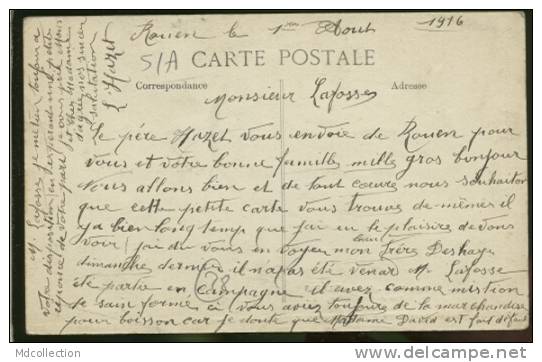 Rouen le 1er Aout 1916
S/A CARTE POSTALE
Correspondance Adresse
Monsieur Lafosse
Le père Hazet vous envoie de Rouen pour
vous et votre bonne famille mille gros bonjour
Nous allons bien et de tout coeure nous souhaiton
que cette petite carte vous trouve de même il
ya bien longtemp que j'ai eu le plaisire de vous
voir j'ai du vous en voyer mon beau frère Deshay
dimanche dernier il n'a pas été venar Mr Lafosse
été partie en campagne il avez comme mistion
de sain formé ci vous aviez toujours de la marchandise
pour boisson car je doute que Madame David est fait défaut
Mr Lafosse je me tien toujour a
votre disposition en esperant une petite
reponse de votre part
et cher Madame
salutation
L Hazet
Mdcollection
http://www.delcampe.net